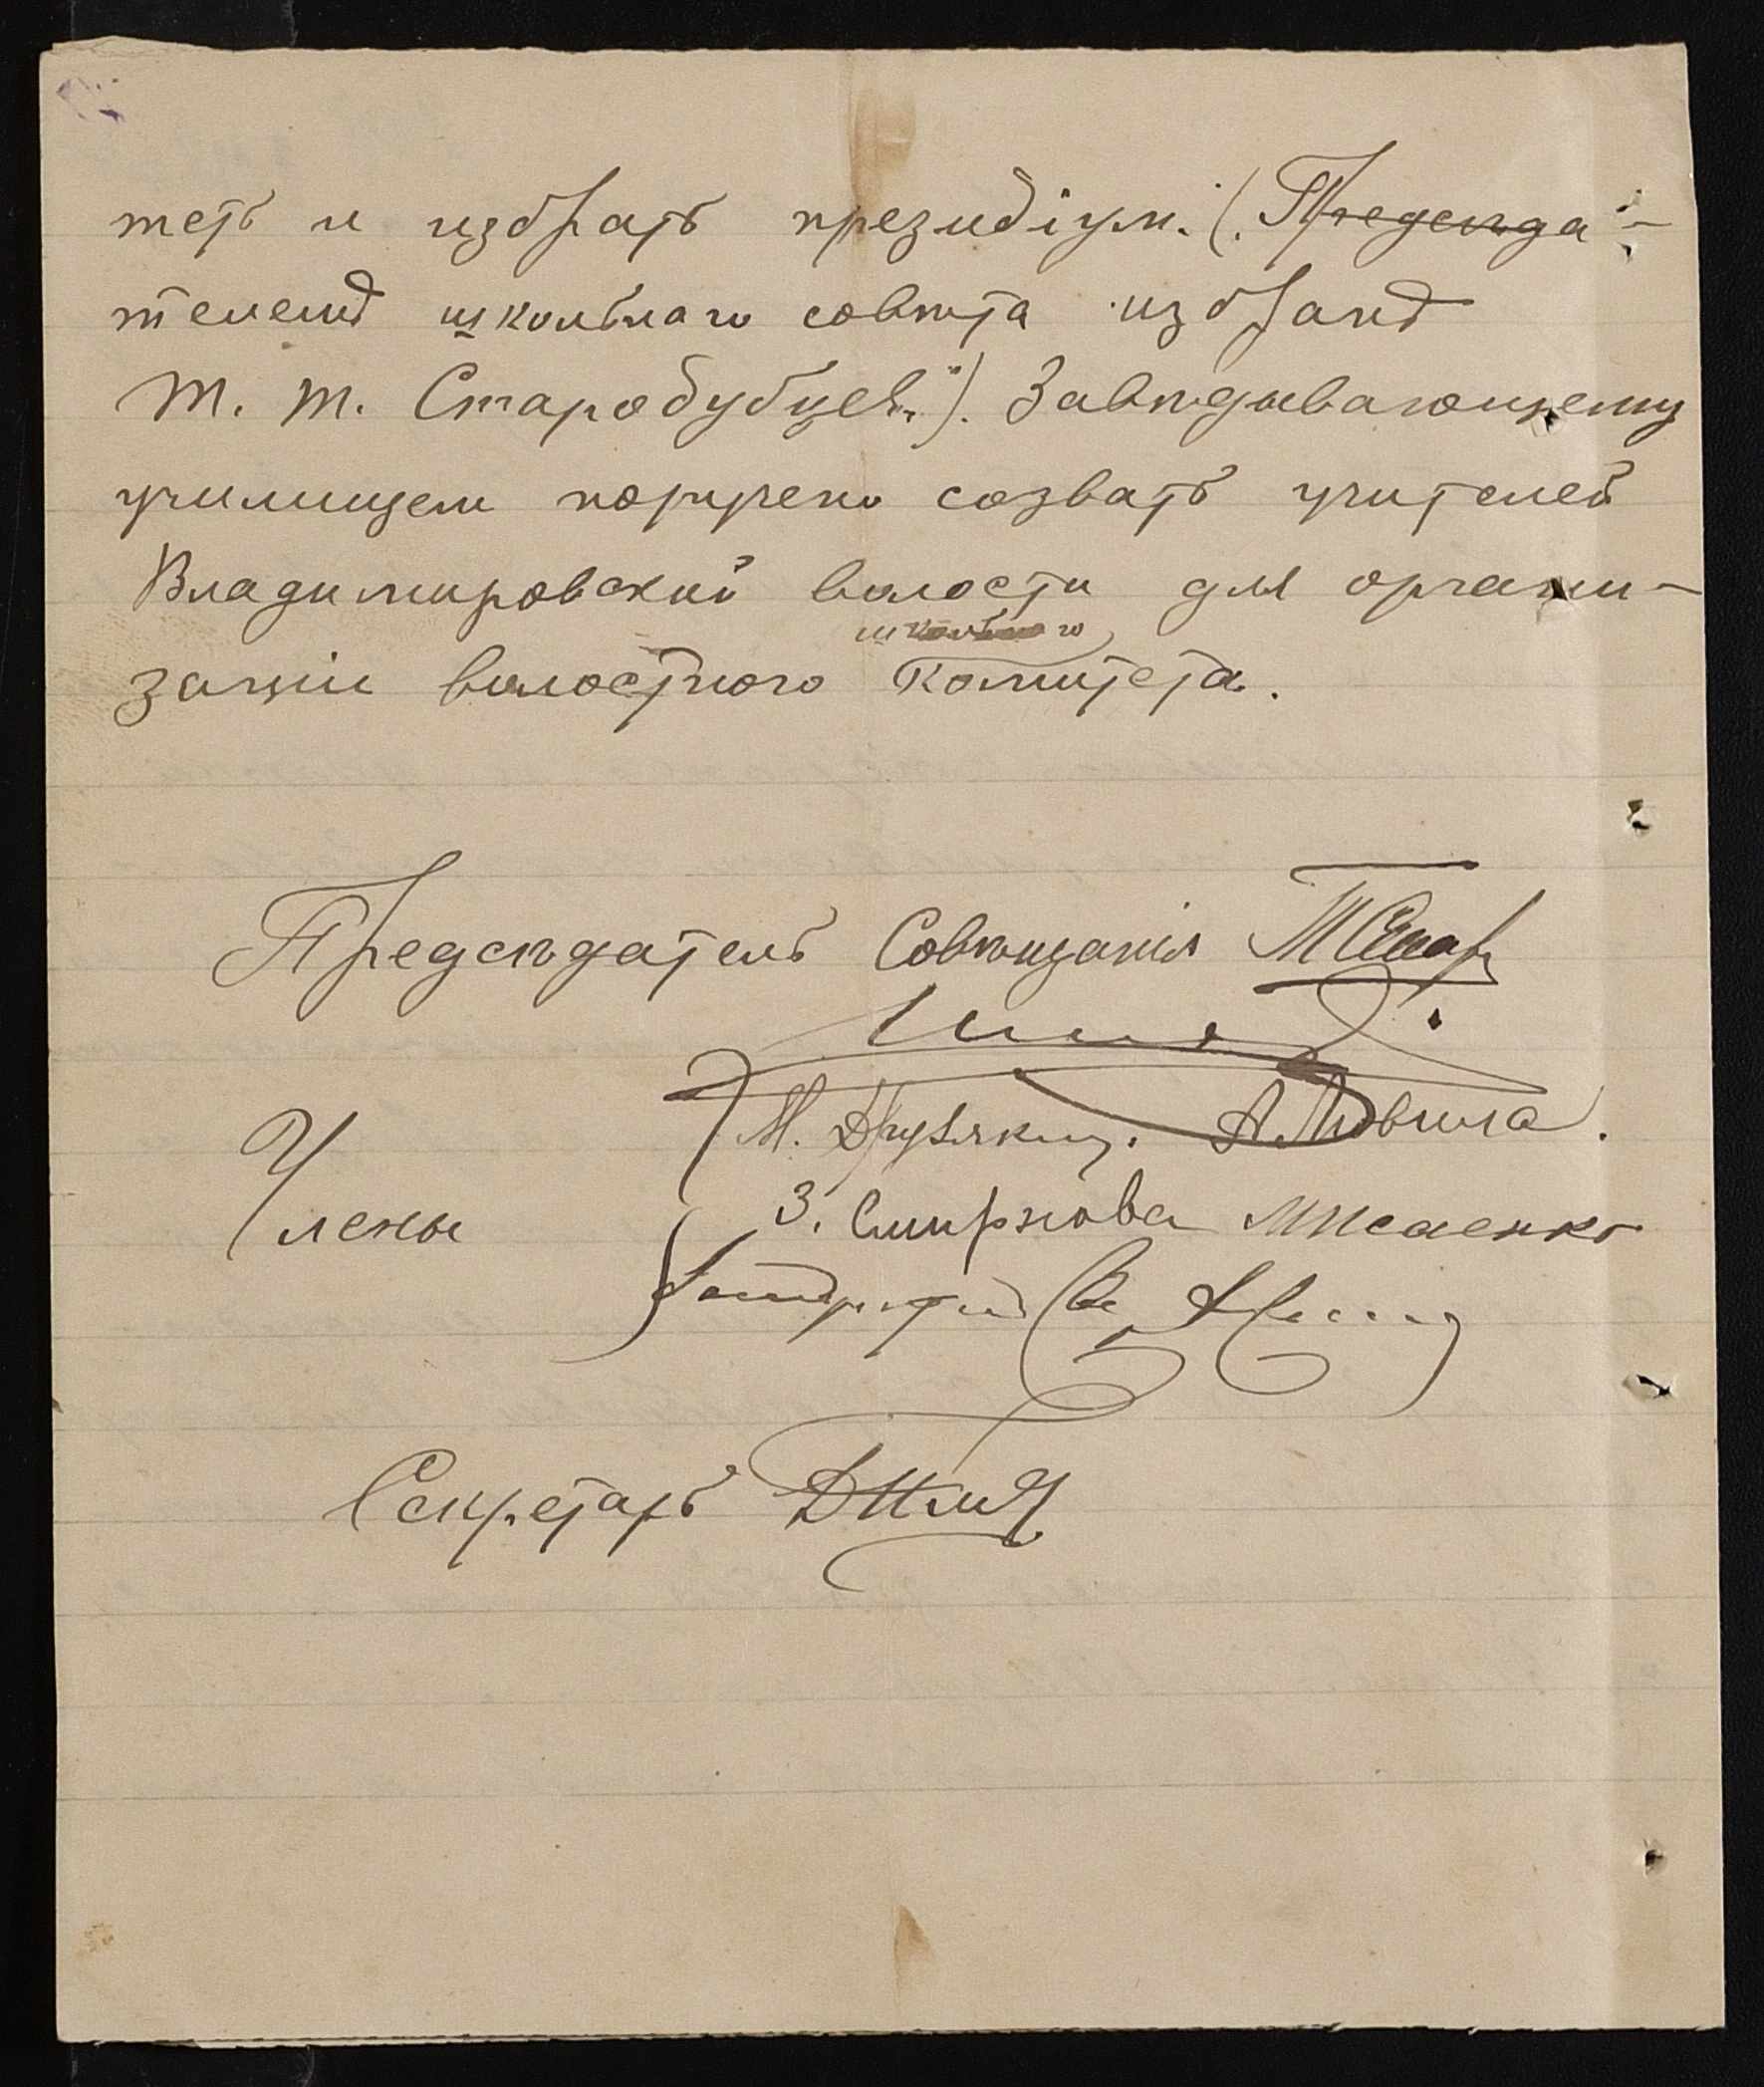 тетъ и избрать президіумъ. (Предсѣда-
телемъ школьнаго совѣта избранъ
т. т. Старобубцевъ). Завѣдывающему
училищем поручено созвать учителей
Владимировской волости для органи-
заціи волостного школьнаго комитета.
Предсѣдатель Совѣщанія
М.
Члены З. Смирнова М Исаенко
Секретарь